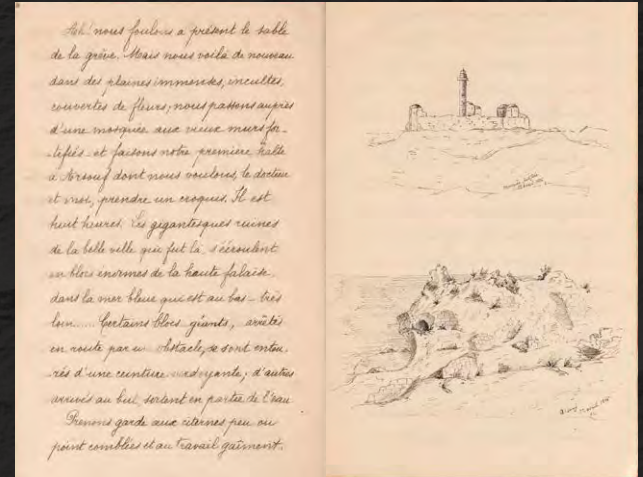 Ah! nous foulons à présent le sable
de la grève. Mais nous voilà de nouveau
dans des plaines immenses, incultes,
couvertes de fleurs; nous passons auprès
d'une mosquée aux vieux murs for-
tifiés et faisons notre première halte
à Arsouf dont nous voulons, le docteur
et moi, prendre un croquis. Il est
huit heures. Les gigantesques ruines
de la belle ville qui fut là, s'écroulent
en blocs énormes de la haute falaise,
dans la mer bleue qui est au bas - très
loin.... Certains blocs géants, arrêtés
en route par un obstacle, se sont entou-
rés d'une ceinture verdoyante; d'autres
arrivés au but, sortent en partie de l'eau
Prenons garde aux citernes peu ou
point comblées et au travail gaîment.